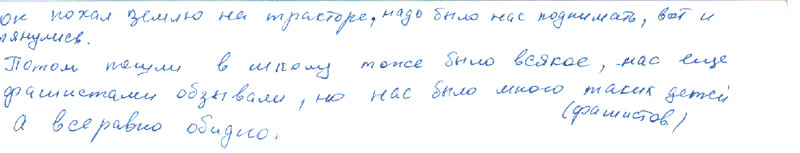 он похал землю на тракторе, надо было нас поднимать, вот и
тянулись.
Потом пошли в школу тоже было всякое, нас еще
фашистами обзывали, но нас было много таких детей
(фашистов)
А всеравно обидно.